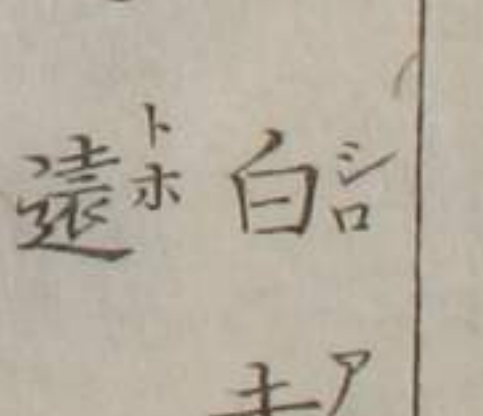 白シロ
遠トホ